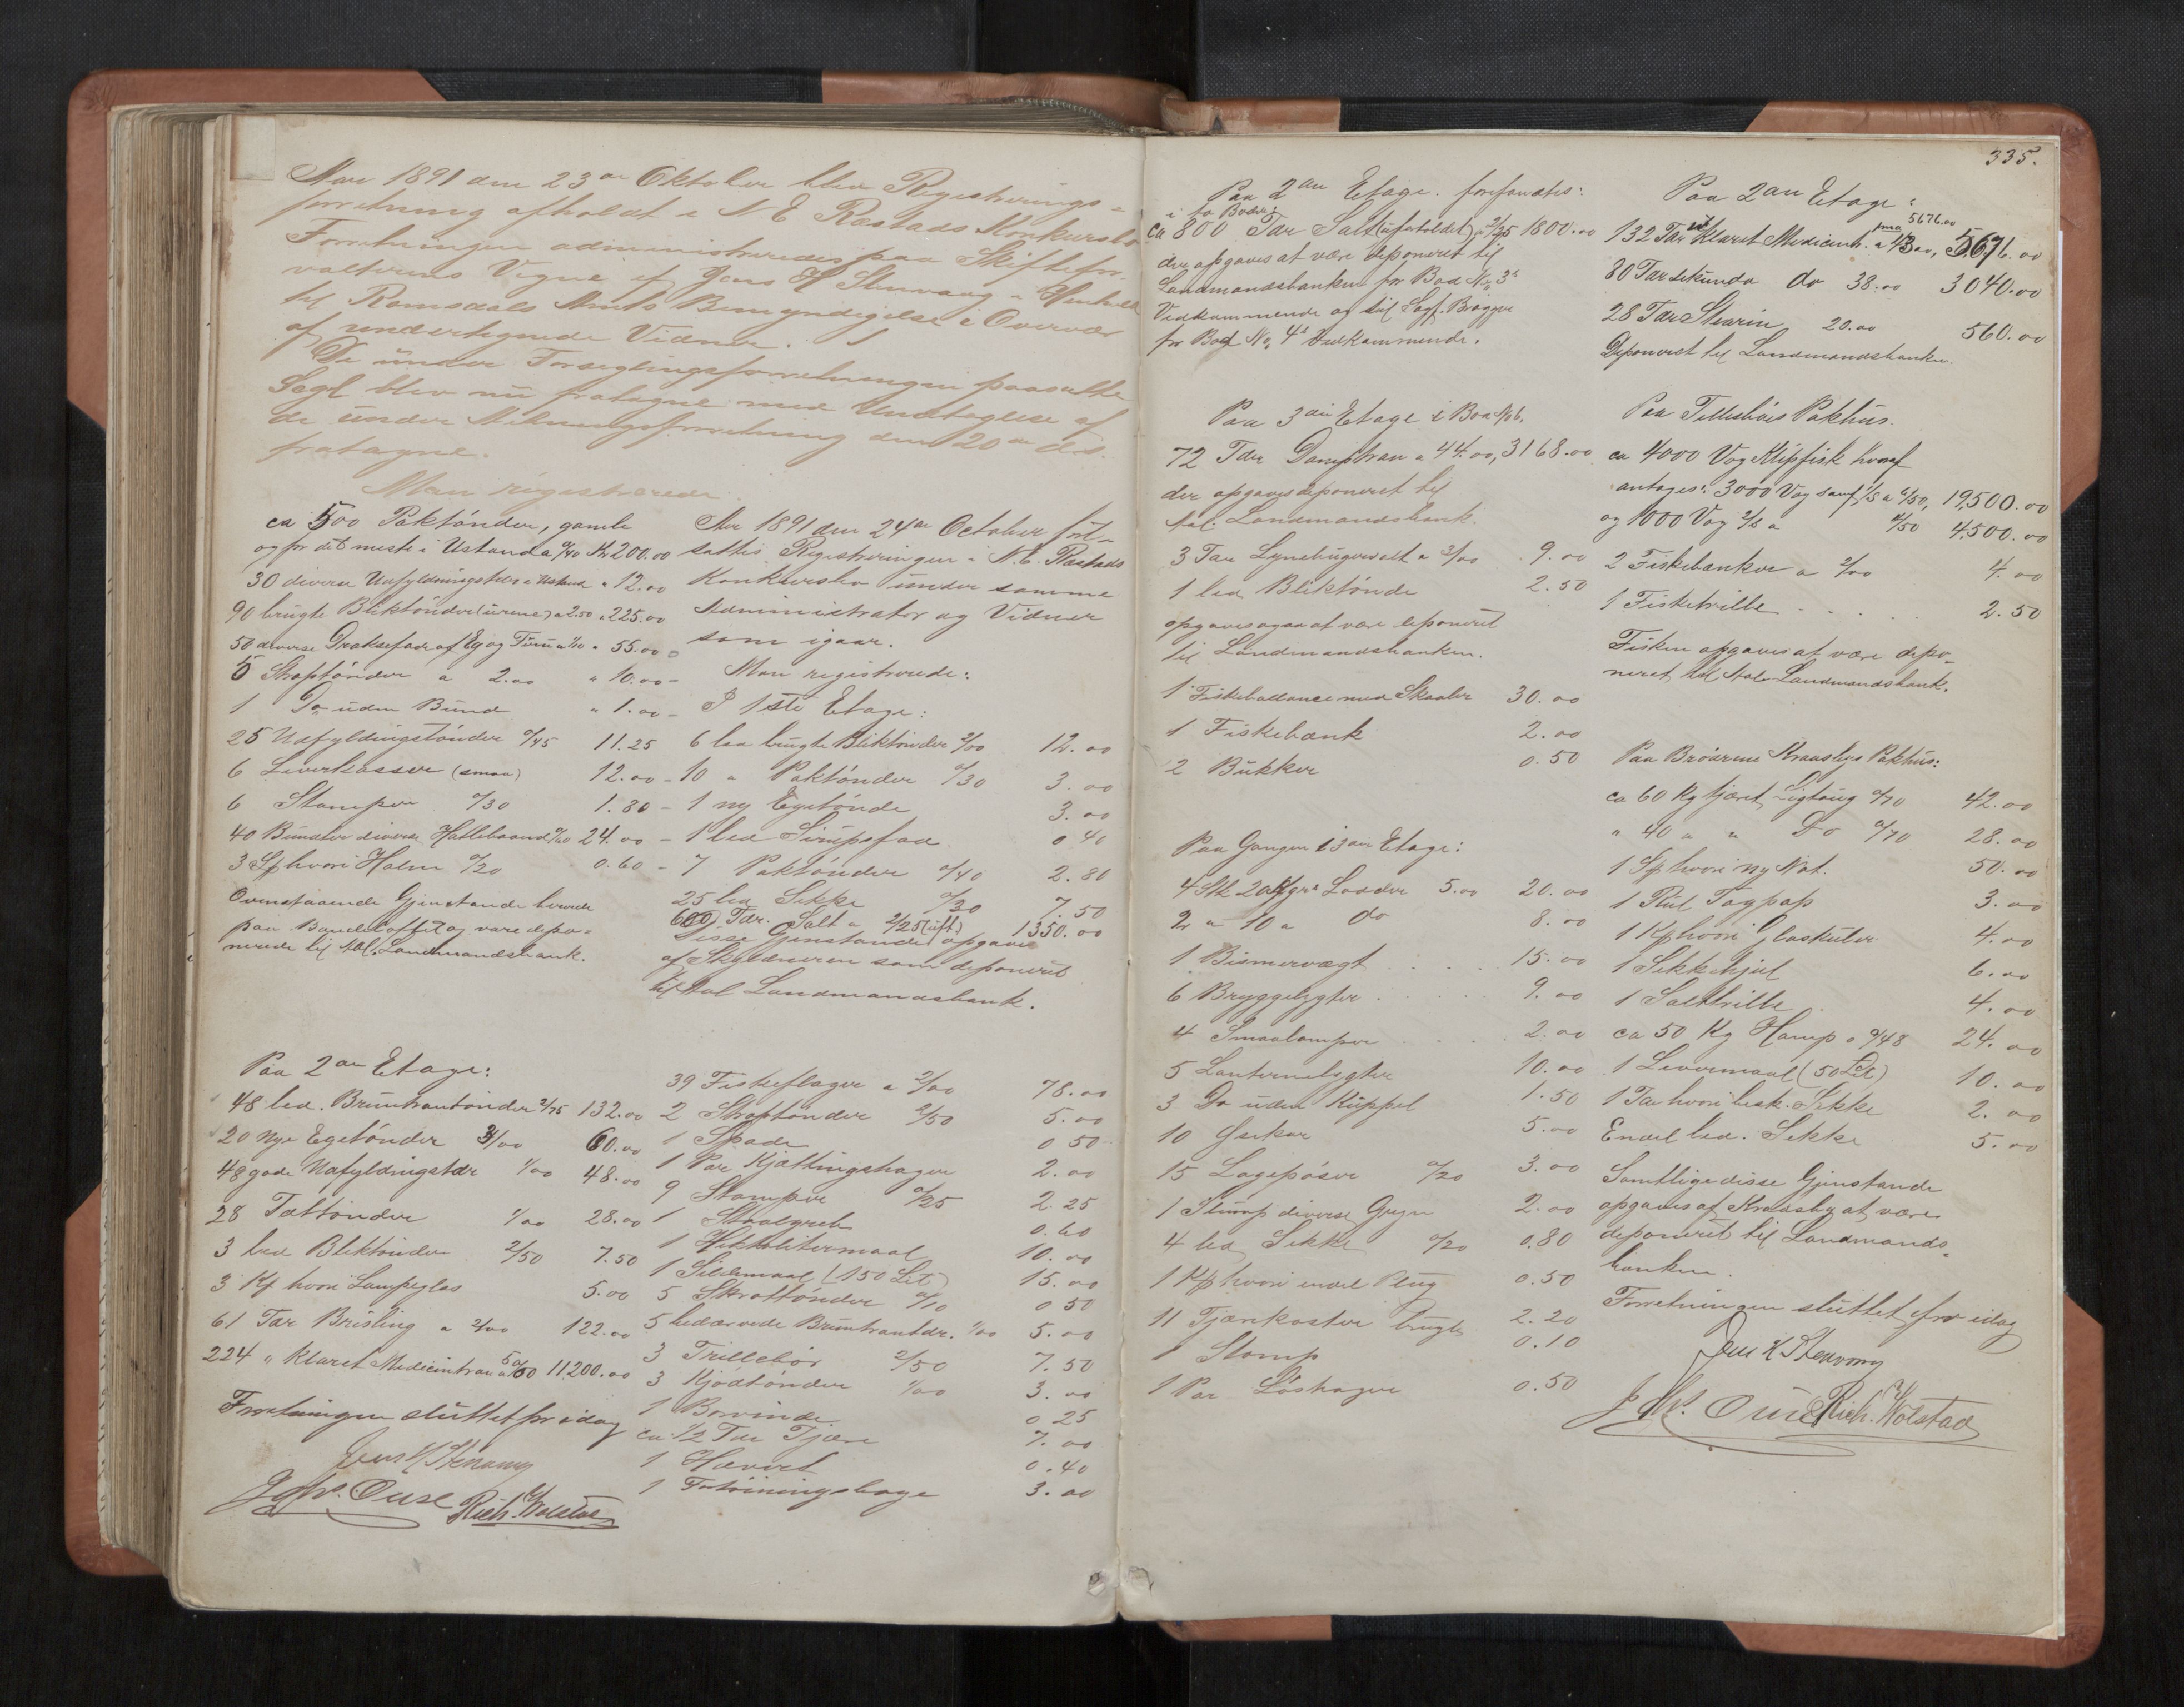 Aar 1891 den 23de Oktober blev Registrerings-
forretning afholdt i N E Rastads Konkursbo
Forretningen administreredes paa Skiftefor-
valterens Vegne af Jens H Stenvaag i Henhold
til Romsdals Amts Bemyndigelse i Overvær
af undertegnede Vidner.
De under Forseglingsforretningen paasatte
Segl blev nu fratagne med Undtagelse af
de under Forretning den 20de ds.
fratagne.
Man registrerede:
ca 500 Paktønder, gamle
og for det meste i Ustand a 0/40 Kr 200.00
30 diverse Uafyldningstdr i Ustand " 12.00
90 brugte Bliktønder (urene) a 2.50 " 225.00
50 diverse Draksefade af Eg og Furu a 1/10 " 55.00
5 Straptønder a 2.00 " 10.00 -
1 Do uden Bund " 1.00 -
25 Uafyldningstønder 0/45 11.25
6 Leverkasser (smaa) 12.00 -
6 Stamper 0/30 1.80 -
40 Bundter diverse Hattebaand 0/60 24.00 -
3 Sk hvori Halm 0/20 0.60 -
Ovenstaaende Gjenstande beroede
paa Baandeloftet og være depo-
nerede til Aal. Landmandsbank.
Paa 2den Etage:
48 led. Bruntrantønder 2/75 132.00
20 nye Egetønder 3/00 60.00
48 gode Uafyldningstdr 1/00 48.00
28 Tættønder 1/00 28.00
3 led Bliktønder 2/50 7.50
3 Kf hvori Lampeglas 5.00
61 Tdr Brisling a 2/00 122.00
224 " klaret Medicintran a 50/00 11200.00
Forretningen sluttet for idag
Jens H Stenvaag
Johs. Ouse Rich. Wolstad
Aar 1891 den 24de October fort-
sattes Registreringen i N.E. Rastads
Konkursbo under samme
Administrator og Vidner
som igaar.
Man registrerede:
I 1ste Etage:
6 led brugte Bliktønder 2/00 12.00
10 " Paktønder 0/30 3.00
1 ny Egetønde 3.00
1 led Sirupsfad 0.40
7 Paktønder 0/40 2.80
25 led Sekke 0/30 7.50
600 Tdr. Salt a 2/25 (uft) 1350.00
Disse Gjenstande opgaves
af Skyldneren som deponeret
til Aal Landmandsbank.
39 Fiskeflager a 2/00 78.00
2 Straptønder 2/50 5.00
1 Spade 0 50
1 Par Kjættingshager 2.00
9 Stamper 0/25 2.25
1 Staalgreb 0.60
1 Hektolitermaal 10.00
1 Sildemaal (150 Lit) 15.00
5 Skrottønder 0/10 0 50
5 bedærvede Bruntrantdr. 1/00 5.00
3 Trillebør 2/50 7.50
3 Kjødtønder 1/00 3.00
1 Borvinde 0 25
ca 1/2 Tde Tjære 7.00
1 Hævert 0.40
1 Fortøiningshage 3.00
335.
Paa 2den Etage. forefandtes:
i to Boder:
ca 800 Tdr Salt (ufortoldet) a 2/25 1800.00
der opgaves at være deponeret til
Landmandsbanken for Bod No 3s
Vedkommende og til Sagf. Brøgger
for Bod No. 4s Vedkommende.
Paa 3die Etage i Bod No 6.
72 Tdr Damptran a 44.00, 3168.00
der opgaves deponeret til
Aal. Landmandsbank.
3 Tdr Lyneburgersalt a 3/00 9.00
1 led Bliktønde 2.50
opgaves ogsaa at være deponeret
til Landmandsbanken.
1 Fiskeballance med Skaaler 30.00
1 Fiskebænk 2.00
2 Bukker 0.50
Paa Gangen i 3die Etage:
4 Stk 20 Kgrs Lodder 5.00 20.00
2 " 10 " do 8.00
1 Bismervægt . . . . 15.00
6 Bryggelygter . . . . . 9.00
4 Smaalamper . . . . 2.00
5 Lanternelygter 10.00
3 Do uden Kuppel 1.50
10 Øsekar 5.00
15 Lagepøser 0/20 3.00
1 Stump diverse Grejer 2.00
4 led Sekke 0/20 0.80
1 Kf hvori endel Plug 0.50
11 Tjærekoster brugte 2.20
1 Stamp 0.10
1 Par Løshager 0.50
Paa 2den Etage:
prma 5676.00
132 Tdr klaret Medicintr. a 43.00, 5676.00
80 Tdr sekunda do 38.00 3040.00
28 Tdr Stearin 20.00 560.00
Deponeret til Landmandsbanken.
Paa Pakhus.
ca 4000 Vog Klipfisk hvoraf
antages: 3000 Vog sund 1/s a 6/50, 19,500.00
og 1000 Vog 2/s a 4/50 4,500.00
2 Fiskebænker a 2/00 4.00
1 Fisketrille . . . . 2.50
Fisken opgaves at være depo-
neret til Aal. Landmandsbank.
Paa Brødrene Kraasbys Pakhus:
ca 60 Kg tjæret Ligtoug 0/70 42.00
" 40 " " Do 0/70 28.00
1 Sk hvori ny Not. 50.00
1 Rul Tagpap 3.00
1 Kf hvori Glaskuler 4.00
1 Sekkehjul 6.00
1 Salttrille 4.00
ca 50 Kg Hamp a 0/48 24.00
1 Levermaal (50 Lit) 10.00
1 Tde hvori besk. Sekke 2.00
Endel led. Sekke 5.00
Samtlige disse Gjenstande
opgaves af Kraasby at være
deponeret til Landmands-
banken.
Forretningen sluttet for idag
Jens H Stenvaag
Johs. Ouse Rich. Wolstad